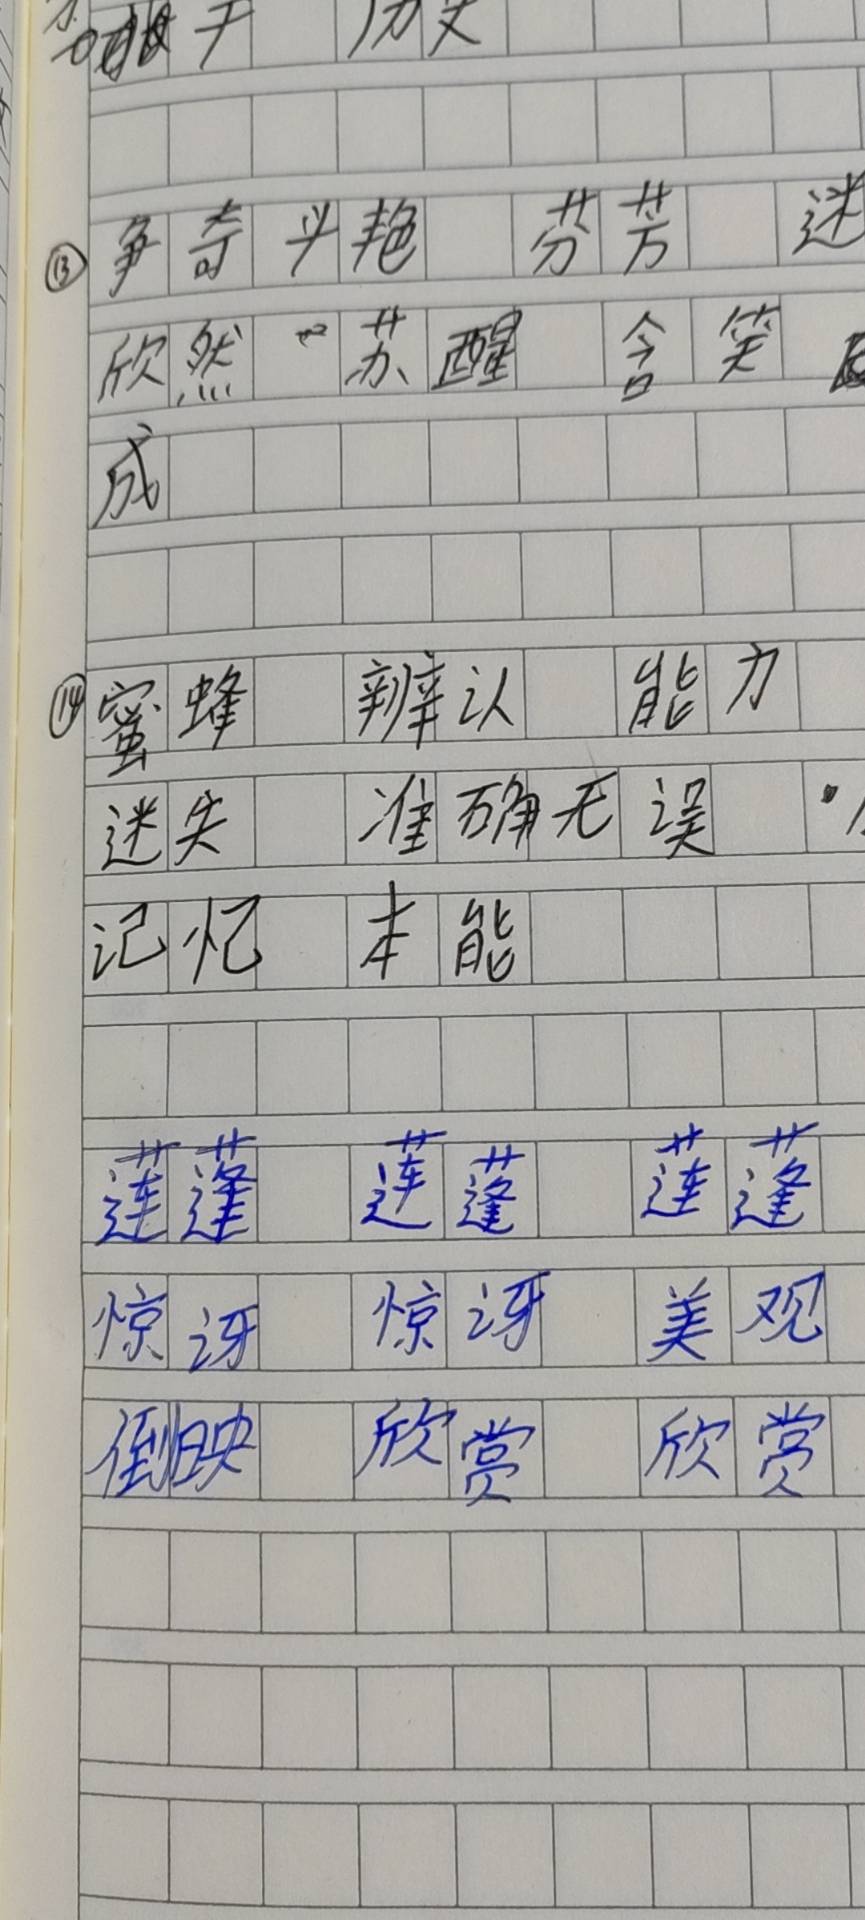 于 历史
⑬ 争奇斗艳 芬芳 迷
欣然 苏醒 含笑
成
⑭ 蜜蜂 辨认 能力
迷失 准确无误
记忆 本能
莲蓬 莲蓬 莲蓬
惊讶 惊讶 美观
倒映 欣赏 欣赏